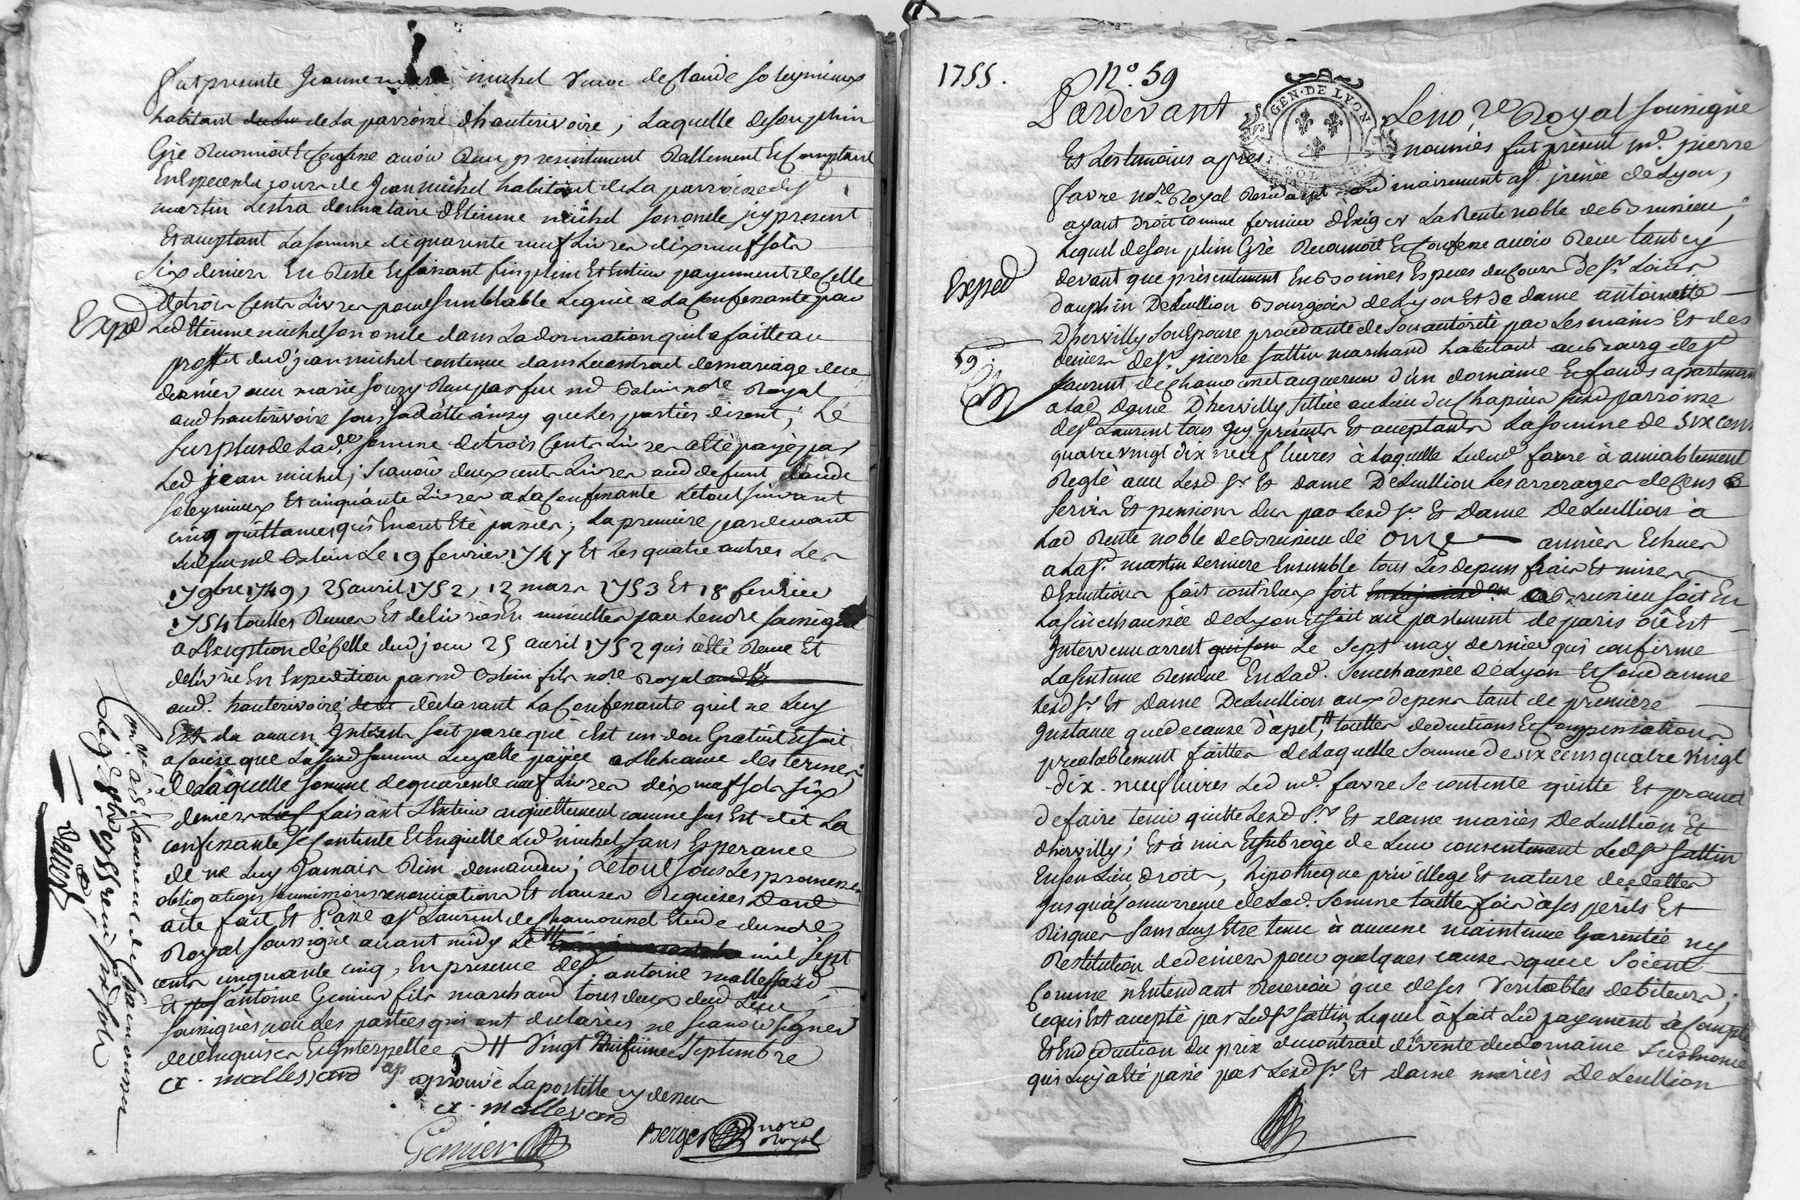 fut presente Jeanne marie michel veuve de Claude soleymieux
habitant de la parroisse d'hauterivoire, laquelle de son plein
Gré Reconnoit Et confesse avoir Reçu presentement Réellement Et comptant
En Especes de cours de Jean michel habitant de la parroisse de st
martin Lestra donnataire d'Etienne michel son oncle jcy present
Et acceptant La somme de quarante neuf Livres dix neuf sols
six deniers En Reste Et faisant l'injtier payement de celle
de trois Cents Livres pour semblable Leguée a La Confessante par
Led Etienne michel son oncle dans La donnation qu'il a faitte au
proffit dud jean michel contenue dans Le contrat de mariage de ce
dernier avec marie souzy Reçu par feu me ostein nore Royal
aud hauterivoire sous sa datte ainsy que Les parties disent, Le
surplus de Lad. somme de trois Cents Livres a été payé par
Led jean michel; sçavoir deux cents Livres aud deffunt Claude
soleymieux Et cinquante Livres a La Confessante Le tout suivant
cinq quittances qui En ont Eté passées; La premiere pardevant
Led feu me ostein Le 19 fevrier 1747 Et Les quatre autres Les
17 9bre 1749, 25 avril 1752, 12 mars 1753 Et 18 fevrier
1754 touttes Reçues Et delivrées En minuttes par Le nore soussigné
a L'Exception de celle dud jour 25 avril 1752 qui a été Reçue Et
delivrée En Expedition par me ostein fils nore Royal
aud. hauterivoire, declarant La Confessante qu'il ne Luy
Est du aucun Interest soit parce que c'est un don Gratuit Et soit
a cause que La susd somme Luy a été payée a L'Echeance des termes;
de Laquelle somme de quarante neuf Livres dix neuf sols six
deniers faisant L'Entier acquittement comme sus Est dit La
confessante se contente Et En quitte Led michel sans Esperance
de ne Luy Jamais Rien demander; Le tout sous Les promesses
obligations soumissions renonciations Et clauses Requises Dont
acte fait Et Passé a St Laurent de Chamousset Etude du nore
Royal soussigné avant midy Le mil sept
cents cinquante cinq, En presence de sr. antoine mallessard
Et sr antoine Genier fils marchand tous deux dud Lieu
soussignés non Les parties qui ont declarées ne sçavoir signer
de ce enquises Et interpellées # Vingt huitieme septembre
a. mallessard approuvé La postille cy dessus
a. mallessard
Genier Berger nore Royal
Expé
Con.lé a St Laurent de Chamousset
Le 9 8bre 1755 reçu six sols
1755. N°. 59
GEN. DE LYON
Pardevant Le no.re Royal soussigné
Et Les temoins apres nommés fut présent me. pierre
favre nore Royal Residant ordinairement a st. jrenée de Lyon,
ayant droit comme fermier d'Exiger La Rente noble de Brunieu;
Lequel de son plein Gré Reconnoit Et Confesse avoir Reçu tant cy
devant que présentement En bonnes Especes du Cours De sr. Loüis
Dauphin DeLeullion Bourgeois de Lyon Et De dame antoinette
Dhervilly son Epouse procedante de son autorité par Les mains Et des
deniers de sr. pierre sattin marchand habitant au bourg de st
Laurent de chamousset acquereur d'un domaine Et fonds apartenant
a Lad dame Dhervilly sittué au Lieu du Chapuis susd parroisse
de st Laurent tous jcy presents Et acceptants La somme de six cens
quatre vingt dix neuf Livres à Laquelle Led me favre à amiablement
Reglé avec Lesd sr Et dame DeLeullion Les arrerages de Cens
servis Et pensions dus par Lesd sr. Et Dame DeLeullion à
Lad Rente noble de Brunieu de onze années Echues
a La st. martin derniere Ensemble tous Les depens frais Et mises
d'Execution fait contr'Eux soit a Brunieu soit En
La sénechaussée de Lyon Et soit au parlement de paris où Est
Intervenu arrest Le sept may dernier qui confirme
La sentence Rendue En Lad. senechaussée de Lyon Et Condamne
Lesd sr Et Dame DeLeullion aux depens tant de premiere
Instance que de cause d'apel, touttes deductions Et Compensations
prealablement faittes de Laquelle somme de six cens quatre vingt
dix-neuf Livres Led me. favre se contente quitte Et promet
de faire tenir quitte Lesd Srs Et dame mariés DeLeullion Et
dhervilly; Et à mis Et subrogé de Leur consentement Led sr sattin
En son Lieu, droit, hipotheque privillege Et nature de dettes
Jusqu'à concurrence de Lad. somme toutte fois a ses perils Et
Risques sans Luy Etre tenu à aucune maintenue Garentie ny
Restitution de deniers pour quelques causes que ce soient
Comme n'Entendant Recevoir que de ses veritables debiteurs;
ce qui Est accepté par Led sr sattin, Lequel à fait Led payement à Compte
Et En deduction du prix du contrat de vente du domaine susénoncé
qui Luy a été passé par Lesd sr. Et dame mariés DeLeullion
Exped
59.